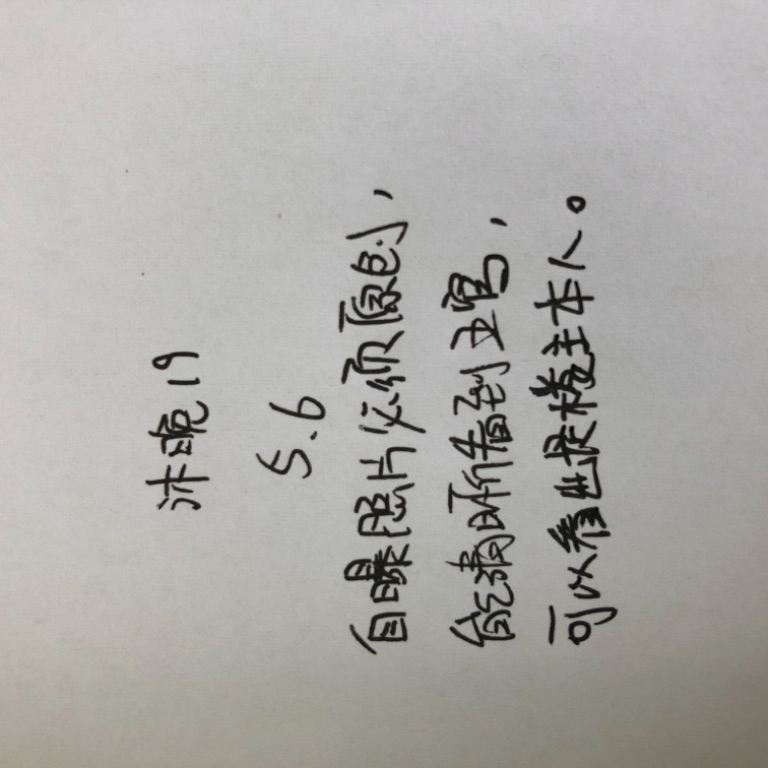 沐晚19
5.6
自曝照片必须原创,
能清晰看到五官,
可以看出是楼主本人。